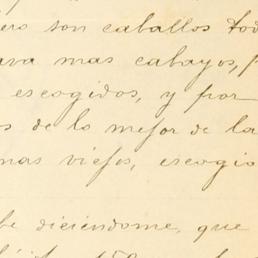 ers son caballos tod
ava mas cabayos, p
escogidos, y por
s de lo mejor de la
mas viejos, escogio
be diciendome, que